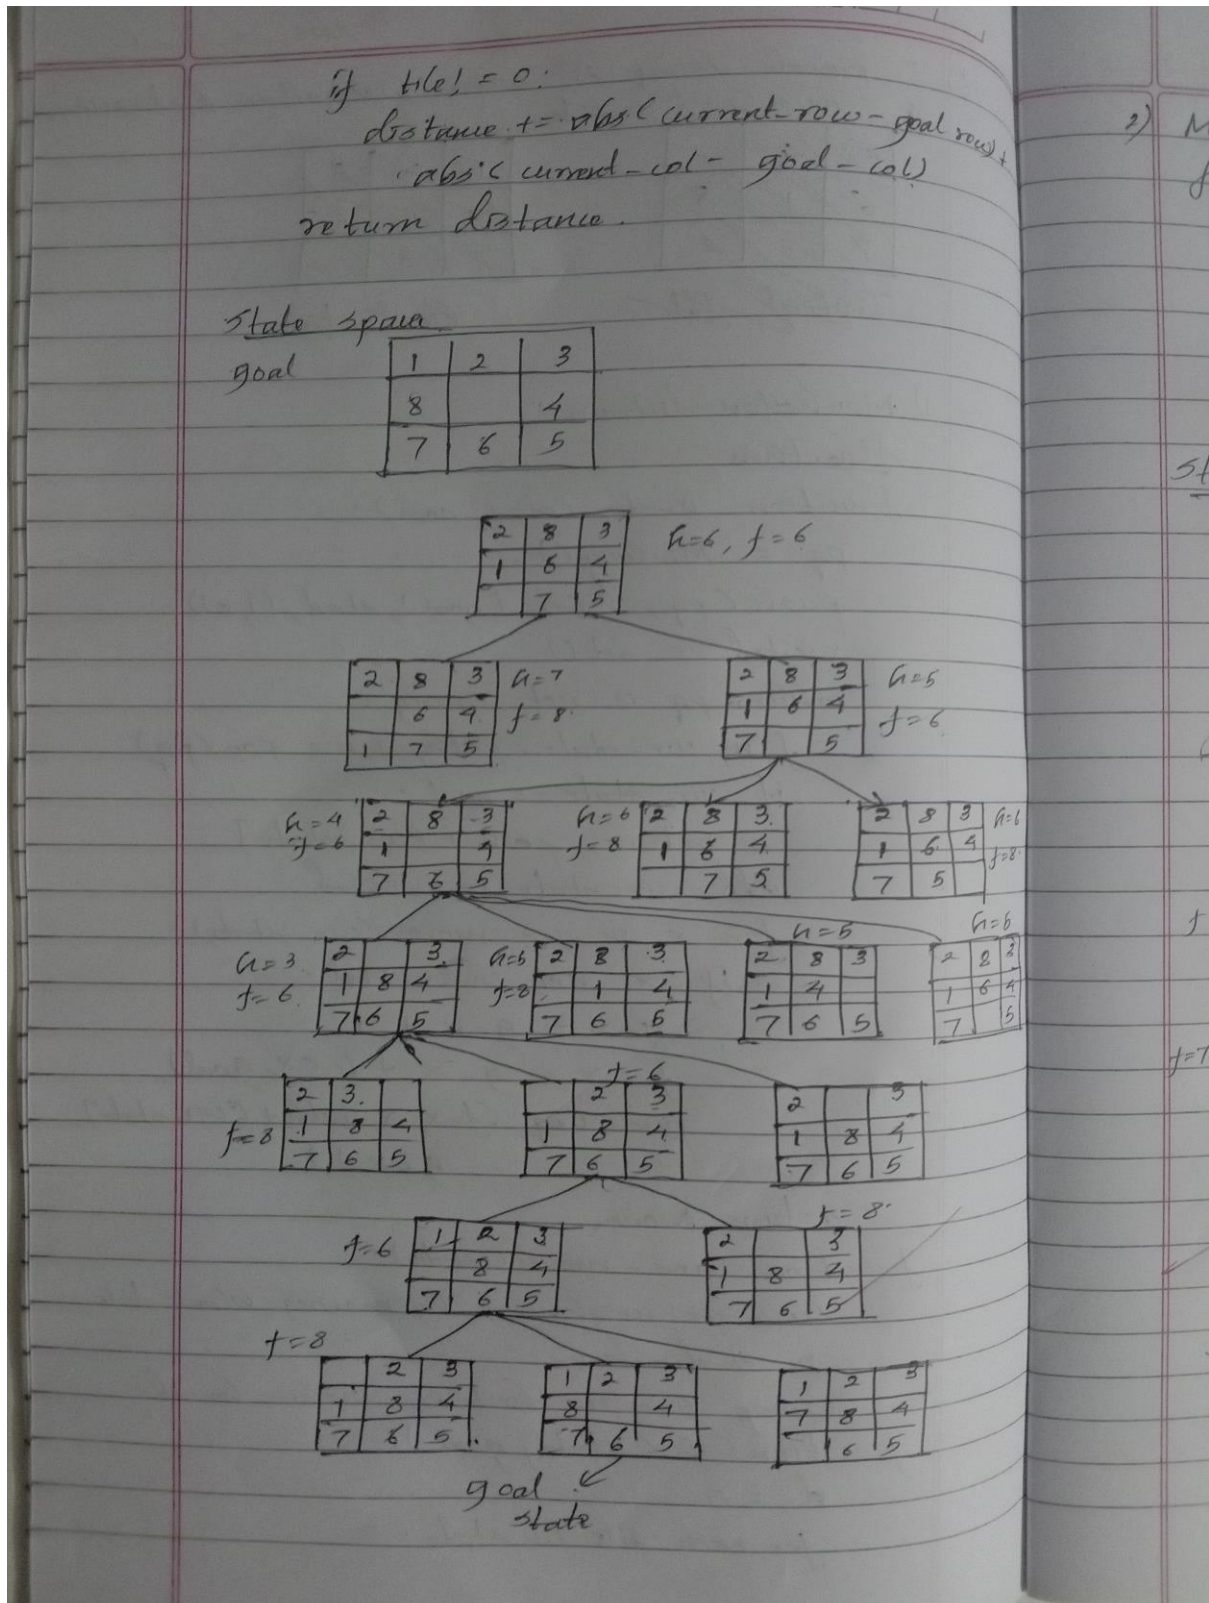 if tile! = 0:
distance += abs(current-row - goal row) +
abs(current-col - goal-col)
return distance.
2) M
State space
goal
1 2 3
8 4
7 6 5
St
2 8 3
1 6 4
7 5
h=6, f=6
2 8 3
6 4
1 7 5
h=7
f=8
2 8 3
1 6 4
7 5
h=5
f=6
h=4
f=6
2 8 3
1 4
7 6 5
h=6
f=8
2 8 3
1 6 4
7 5
2 8 3
1 6 4
7 5
h=6
f=8
h=3
f=6
2 3
1 8 4
7 6 5
h=5
f=8
2 8 3
1 4
7 6 5
h=5
2 8 3
1 4
7 6 5
h=5
2 8 3
1 6 4
7 5
f=7
f=8
2 3
1 8 4
7 6 5
f=6
2 3
1 8 4
7 6 5
2 3
1 8 4
7 6 5
f=6
1 2 3
8 4
7 6 5
f=8
2 3
1 8 4
7 6 5
f=8
2 3
1 8 4
7 6 5
1 2 3
8 4
7 6 5
1 2 3
7 8 4
6 5
goal
state